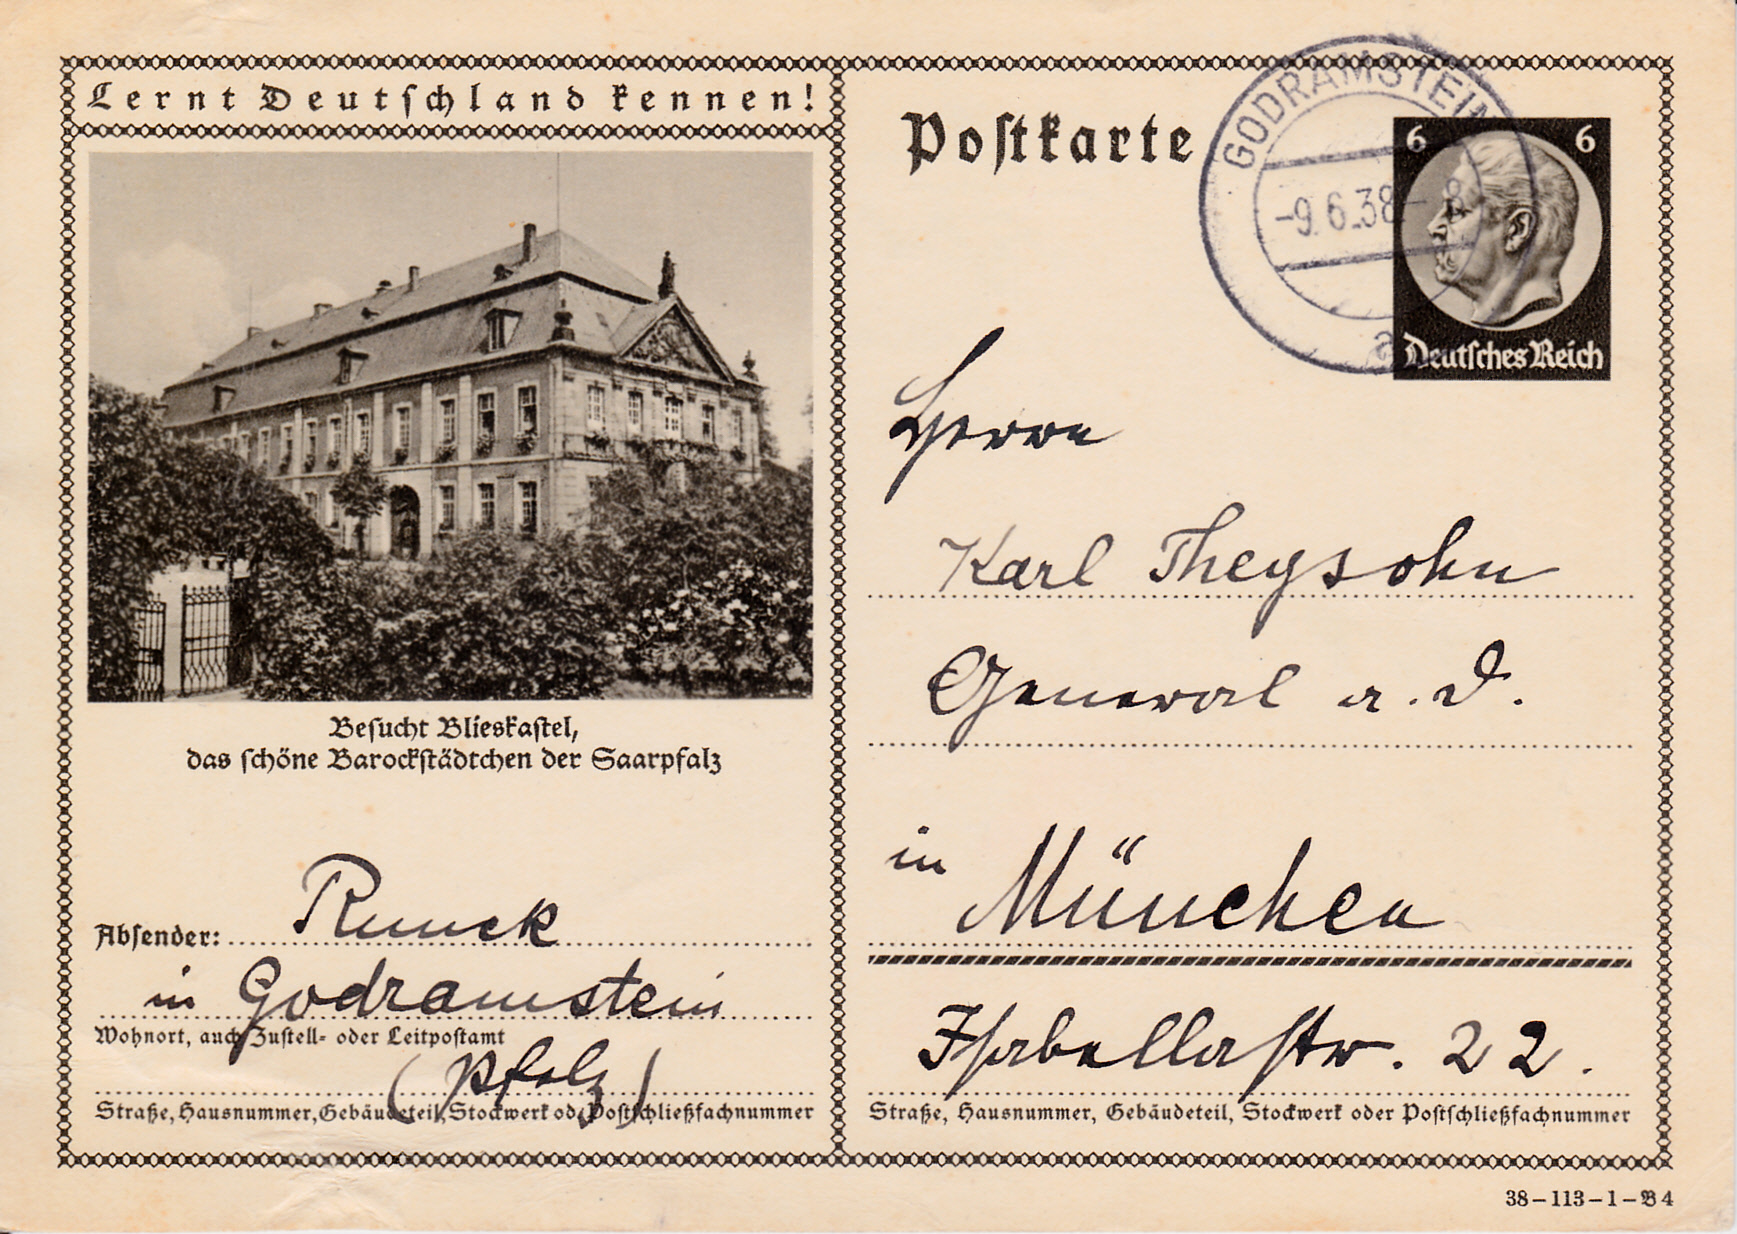 Lernt Deutschland kennen!
Besucht Blieskastel,
das schöne Barockstädtchen der Saarpfalz
Absender: Runck
in Godramstein
Wohnort, auch Zustell- oder Leitpostamt
(Pfalz)
Straße, Hausnummer, Gebäudeteil, Stockwerk od. Postschließfachnummer
Postkarte
GODRAMSTEIN
-9.6.38-8
a
6 6
Deutsches Reich
Herrn
Karl Theysohn
General a. D.
in München
Isabellastr. 22.
Straße, Hausnummer, Gebäudeteil, Stockwerk oder Postschließfachnummer
38-113-1-B4